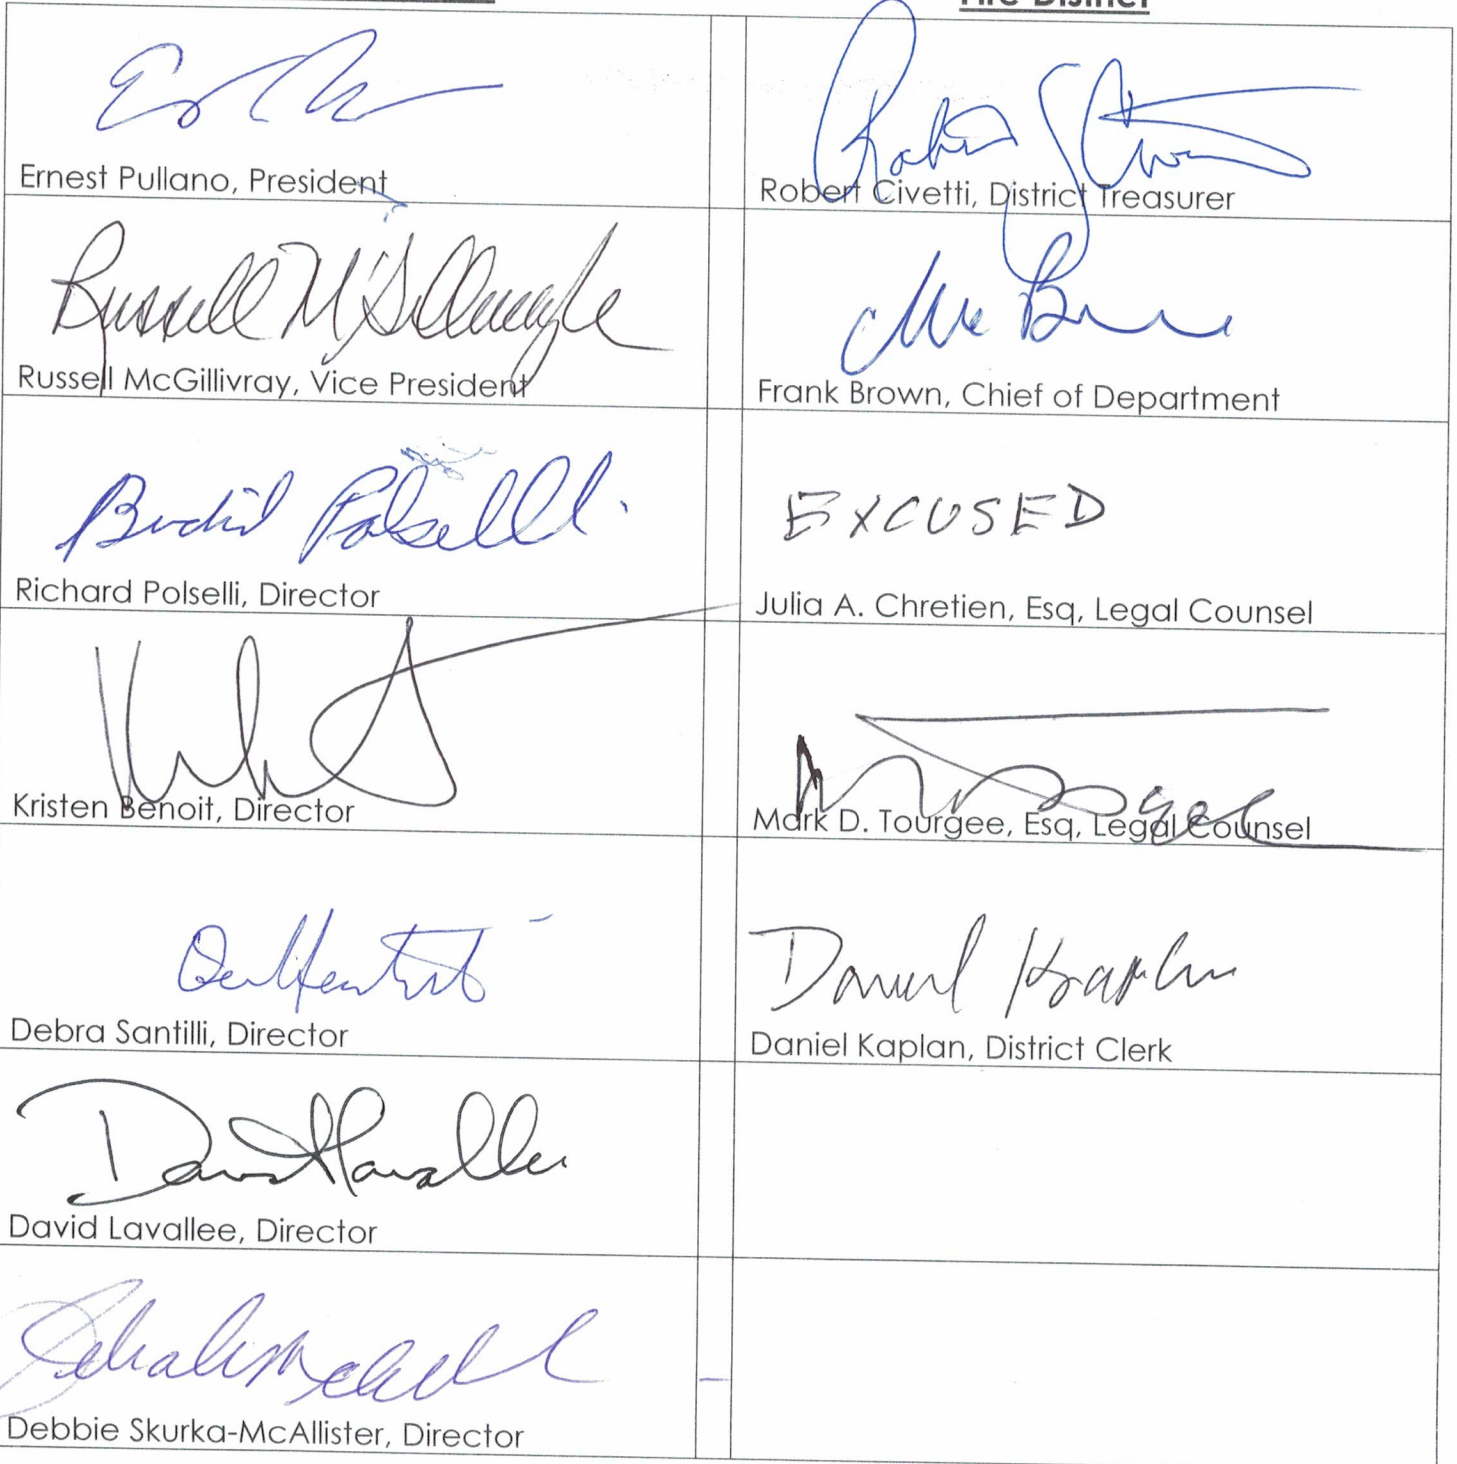 Fire District
Ernest Pullano, President
Robert Civetti, District Treasurer
Russell McGillivray
Russell McGillivray, Vice President
Frank Brown, Chief of Department
Polselli
Richard Polselli, Director
EXCUSED
Julia A. Chretien, Esq, Legal Counsel
Kristen Benoit, Director
Mark D. Tourgee, Esq, Legal Counsel
Debra Santilli, Director
Daniel Kaplan
Daniel Kaplan, District Clerk
David Lavallee
David Lavallee, Director
Debbie Skurka-McAllister, Director